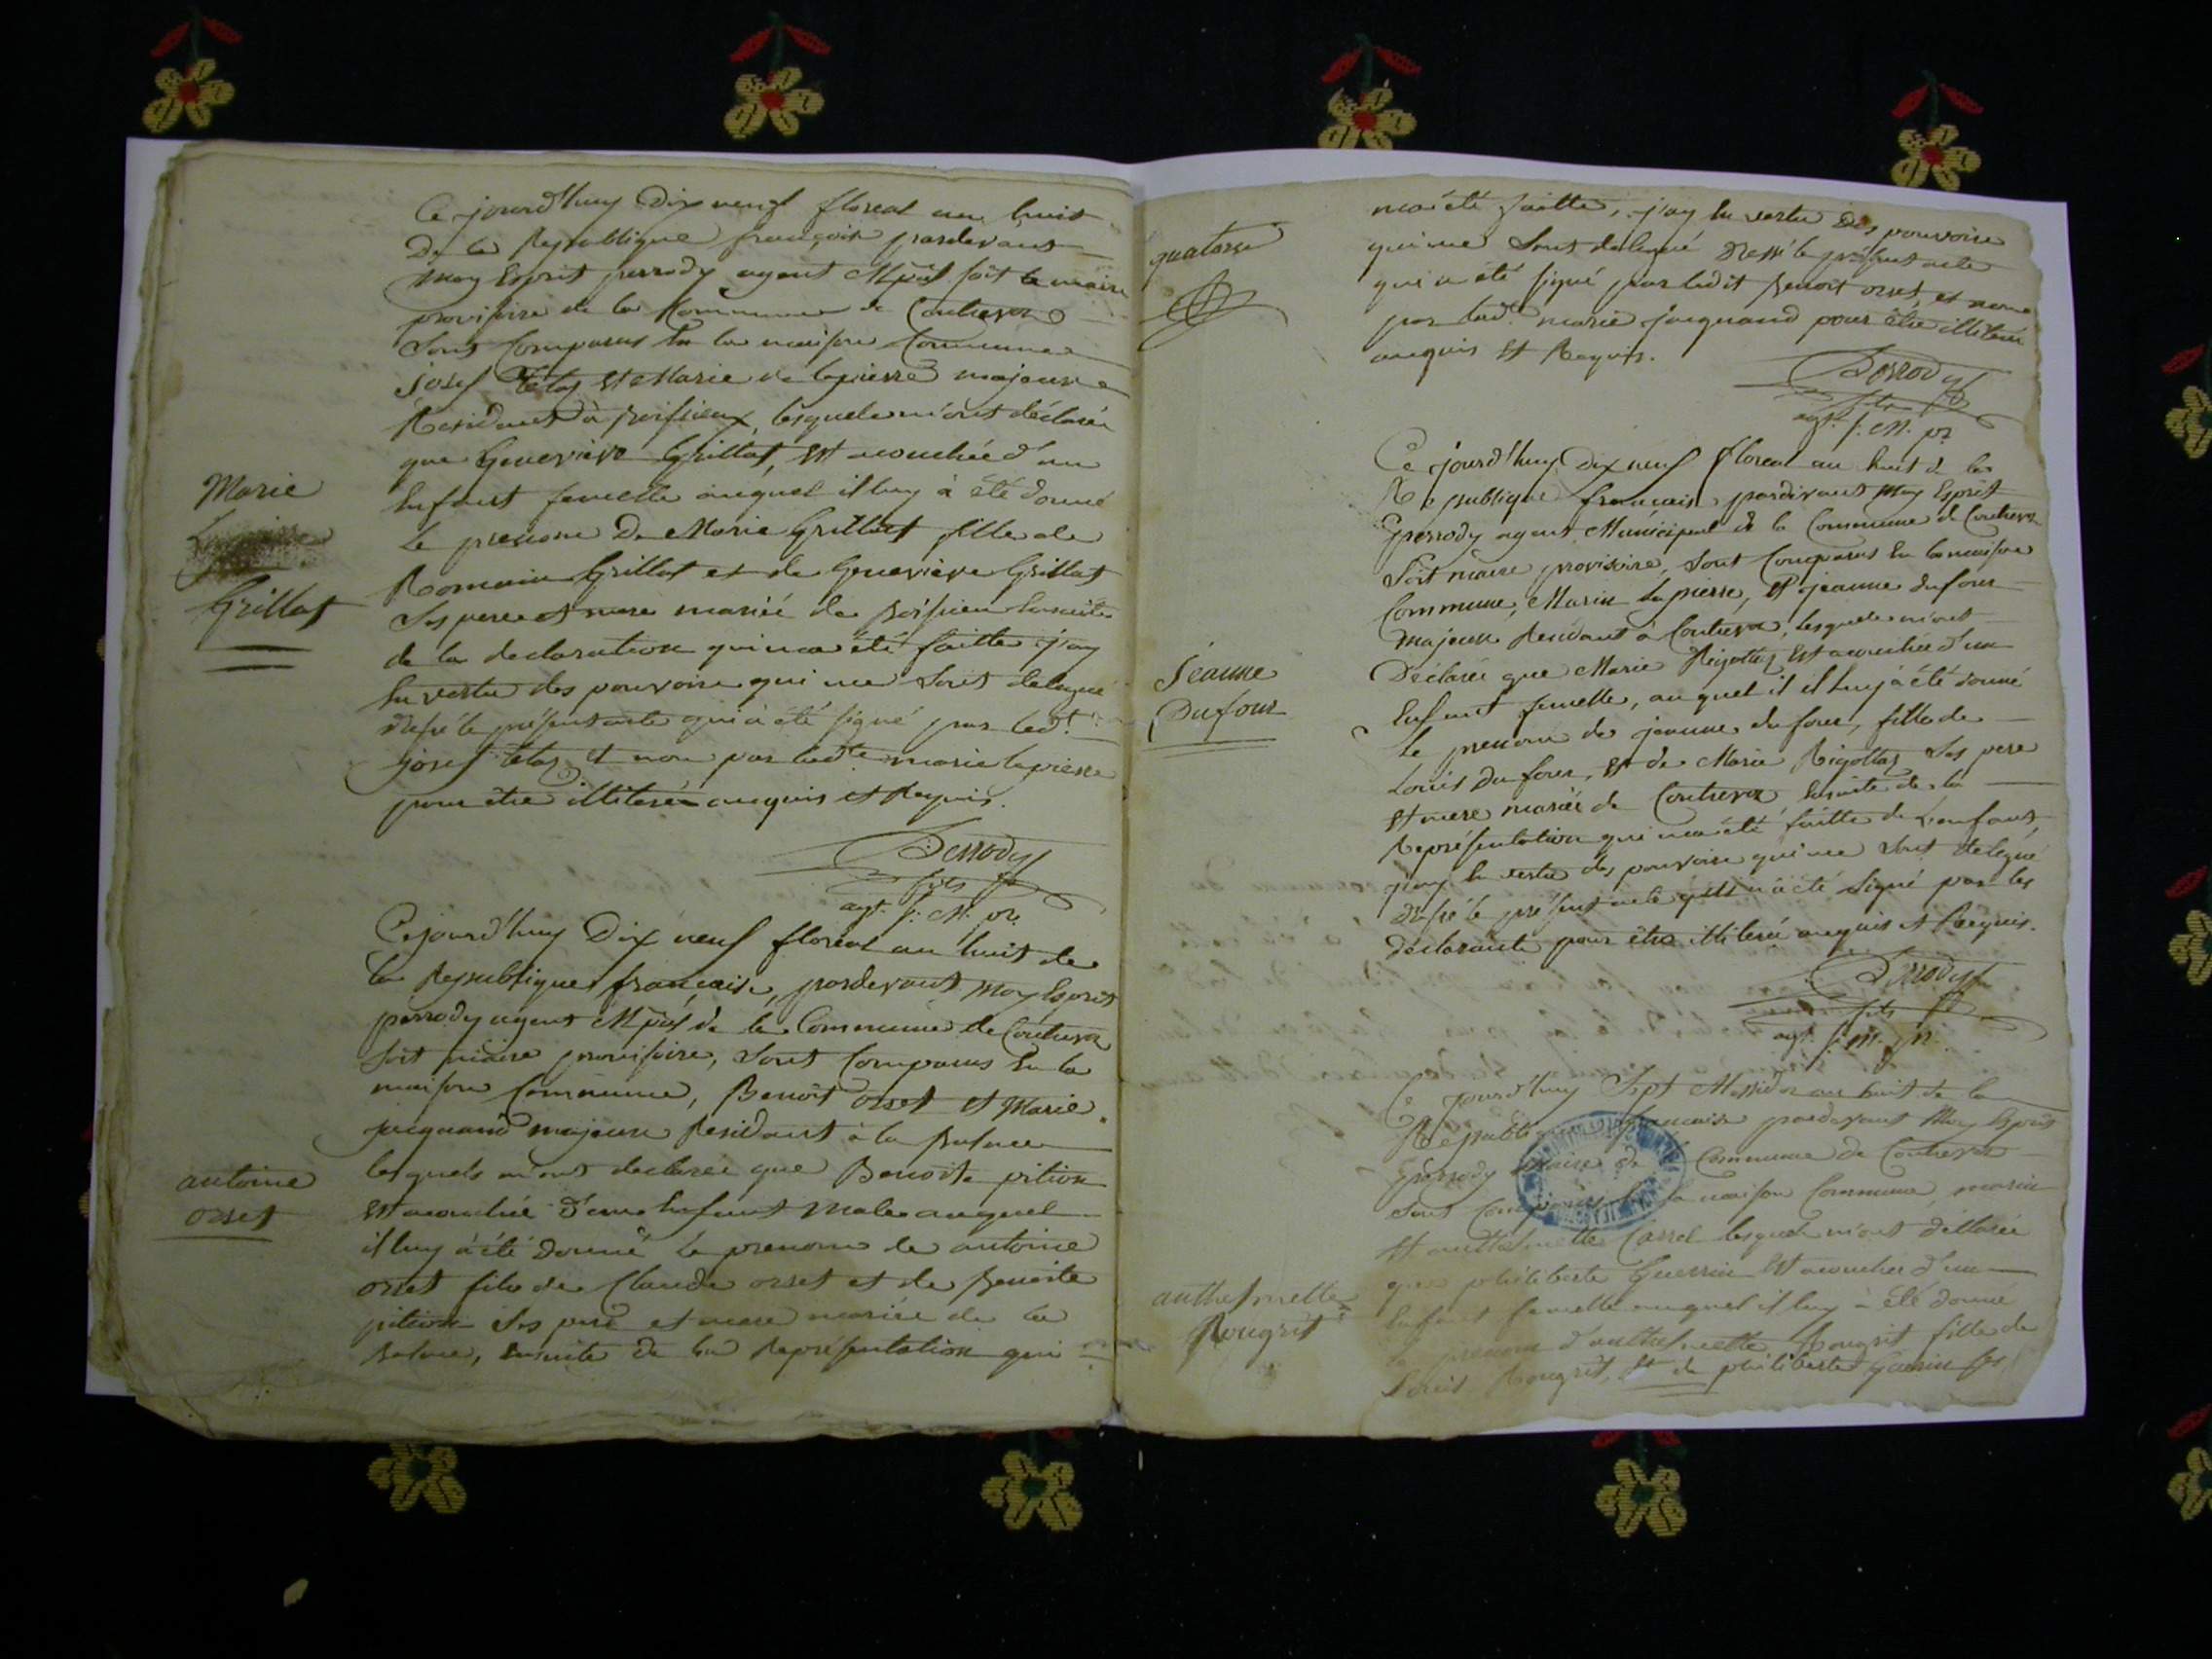 Ce jourd'huy Dix neuf floreal an huit
De la Republique françoise pardevant
moy Esprit perrody agent Mpal soit le maire
provisoire de la Commune de Contrevoz
Sont Comparus En la maison Commune
Josef et Marie de lapierre majeure
Residant à poisieux, lesquels m'ont déclarée
que Genevieve Grillat, Est acouchée d'un
Marie
Enfant femelle auquel il luy à été donné
Le prenom De Marie Grillat fille de
Grillat
Romain Grillat et de Genevieve Grillat
Ses pere et mere mariée de poisieu Ensuite
de la declaration qui m'a été faitte j'ay
En vertu des pouvoire qui me Sont delegué
dressé le présent acte qui à été signé par led.t
josef et non par ladte marie lapierre
pour être illiteré enquis et Requis.
Perrody
fils
agt. f. M. pr.
Ce jourd'huy Dix neuf floreal an huit de
la Republique française, pardevant moy Esprit
perrody agent Mpal de la Commune de Contrevoz
soit maire provisoire, Sont Comparus En la
maison Commune, Benoit orset et Marie
jacquand majeure Residant à la
antoine
orset
lesquels m'ont declarée que Benoite pition
Est acouchée d'un Enfant male auquel
il luy à été donné le prenom de antoine
orset fils de Claude orset et de Benoite
pition Ses pere et mere mariée de la
Ensuite de la Représentation qui
quatorse
m'a été faitte, j'ay En vertu Des pouvoire
qui me Sont delegué Dressé le présent acte
qui a été signé par ledit Benoit orset, et non
par lad.e marie jacquand pour être illiteré
enquis et Requis.
Perrody
fils
agt. f. M. pr.
Ce jourd'huy Dix neuf floreal an huit de la
Republique française pardevant moy Esprit
perrody agent Municipal de la Commune de Contrevoz
Soit maire provisoire, Sont Comparus En la maison
Commune, Marin lapierre, Et jeanne dufour
majeure Residant à Contrevoz, lesquels m'ont
Jeanne
Dufour
Déclarée que Marie Rigottaz Est acouchée d'un
Enfant femelle, auquel il il luy à été donné
Le prenom de jeanne du four, fille de
Louis du four, Et de Marie Rigottaz Ses pere
Et mere mariée de Contrevoz Ensuite de la
Représentation qui m'a été faitte de l'enfant,
j'ay En vertu des pouvoire qui me Sont delegué
dressé le présent acte qui n'à été Signé par les
déclarants pour être illiteré enquis et Requis.
Perrody
fils
agt. f. M. pr.
Ce jourd'huy Sept Messidor an huit de la
française pardevant Moy Esprit
perrody maire de Commune de Contrevoz
Sont la maison Commune, marin
Et anthelmette Carrel lesquels m'ont déclarée
que philiberte Guerrin Est acouchée d'un
anthelmette
Rougrit
Enfant femelle auquel il luy à été donné
le prenom d'anthelmette Rougrit fille de
Louis Rougrit, Et de philiberte guerrin Ses